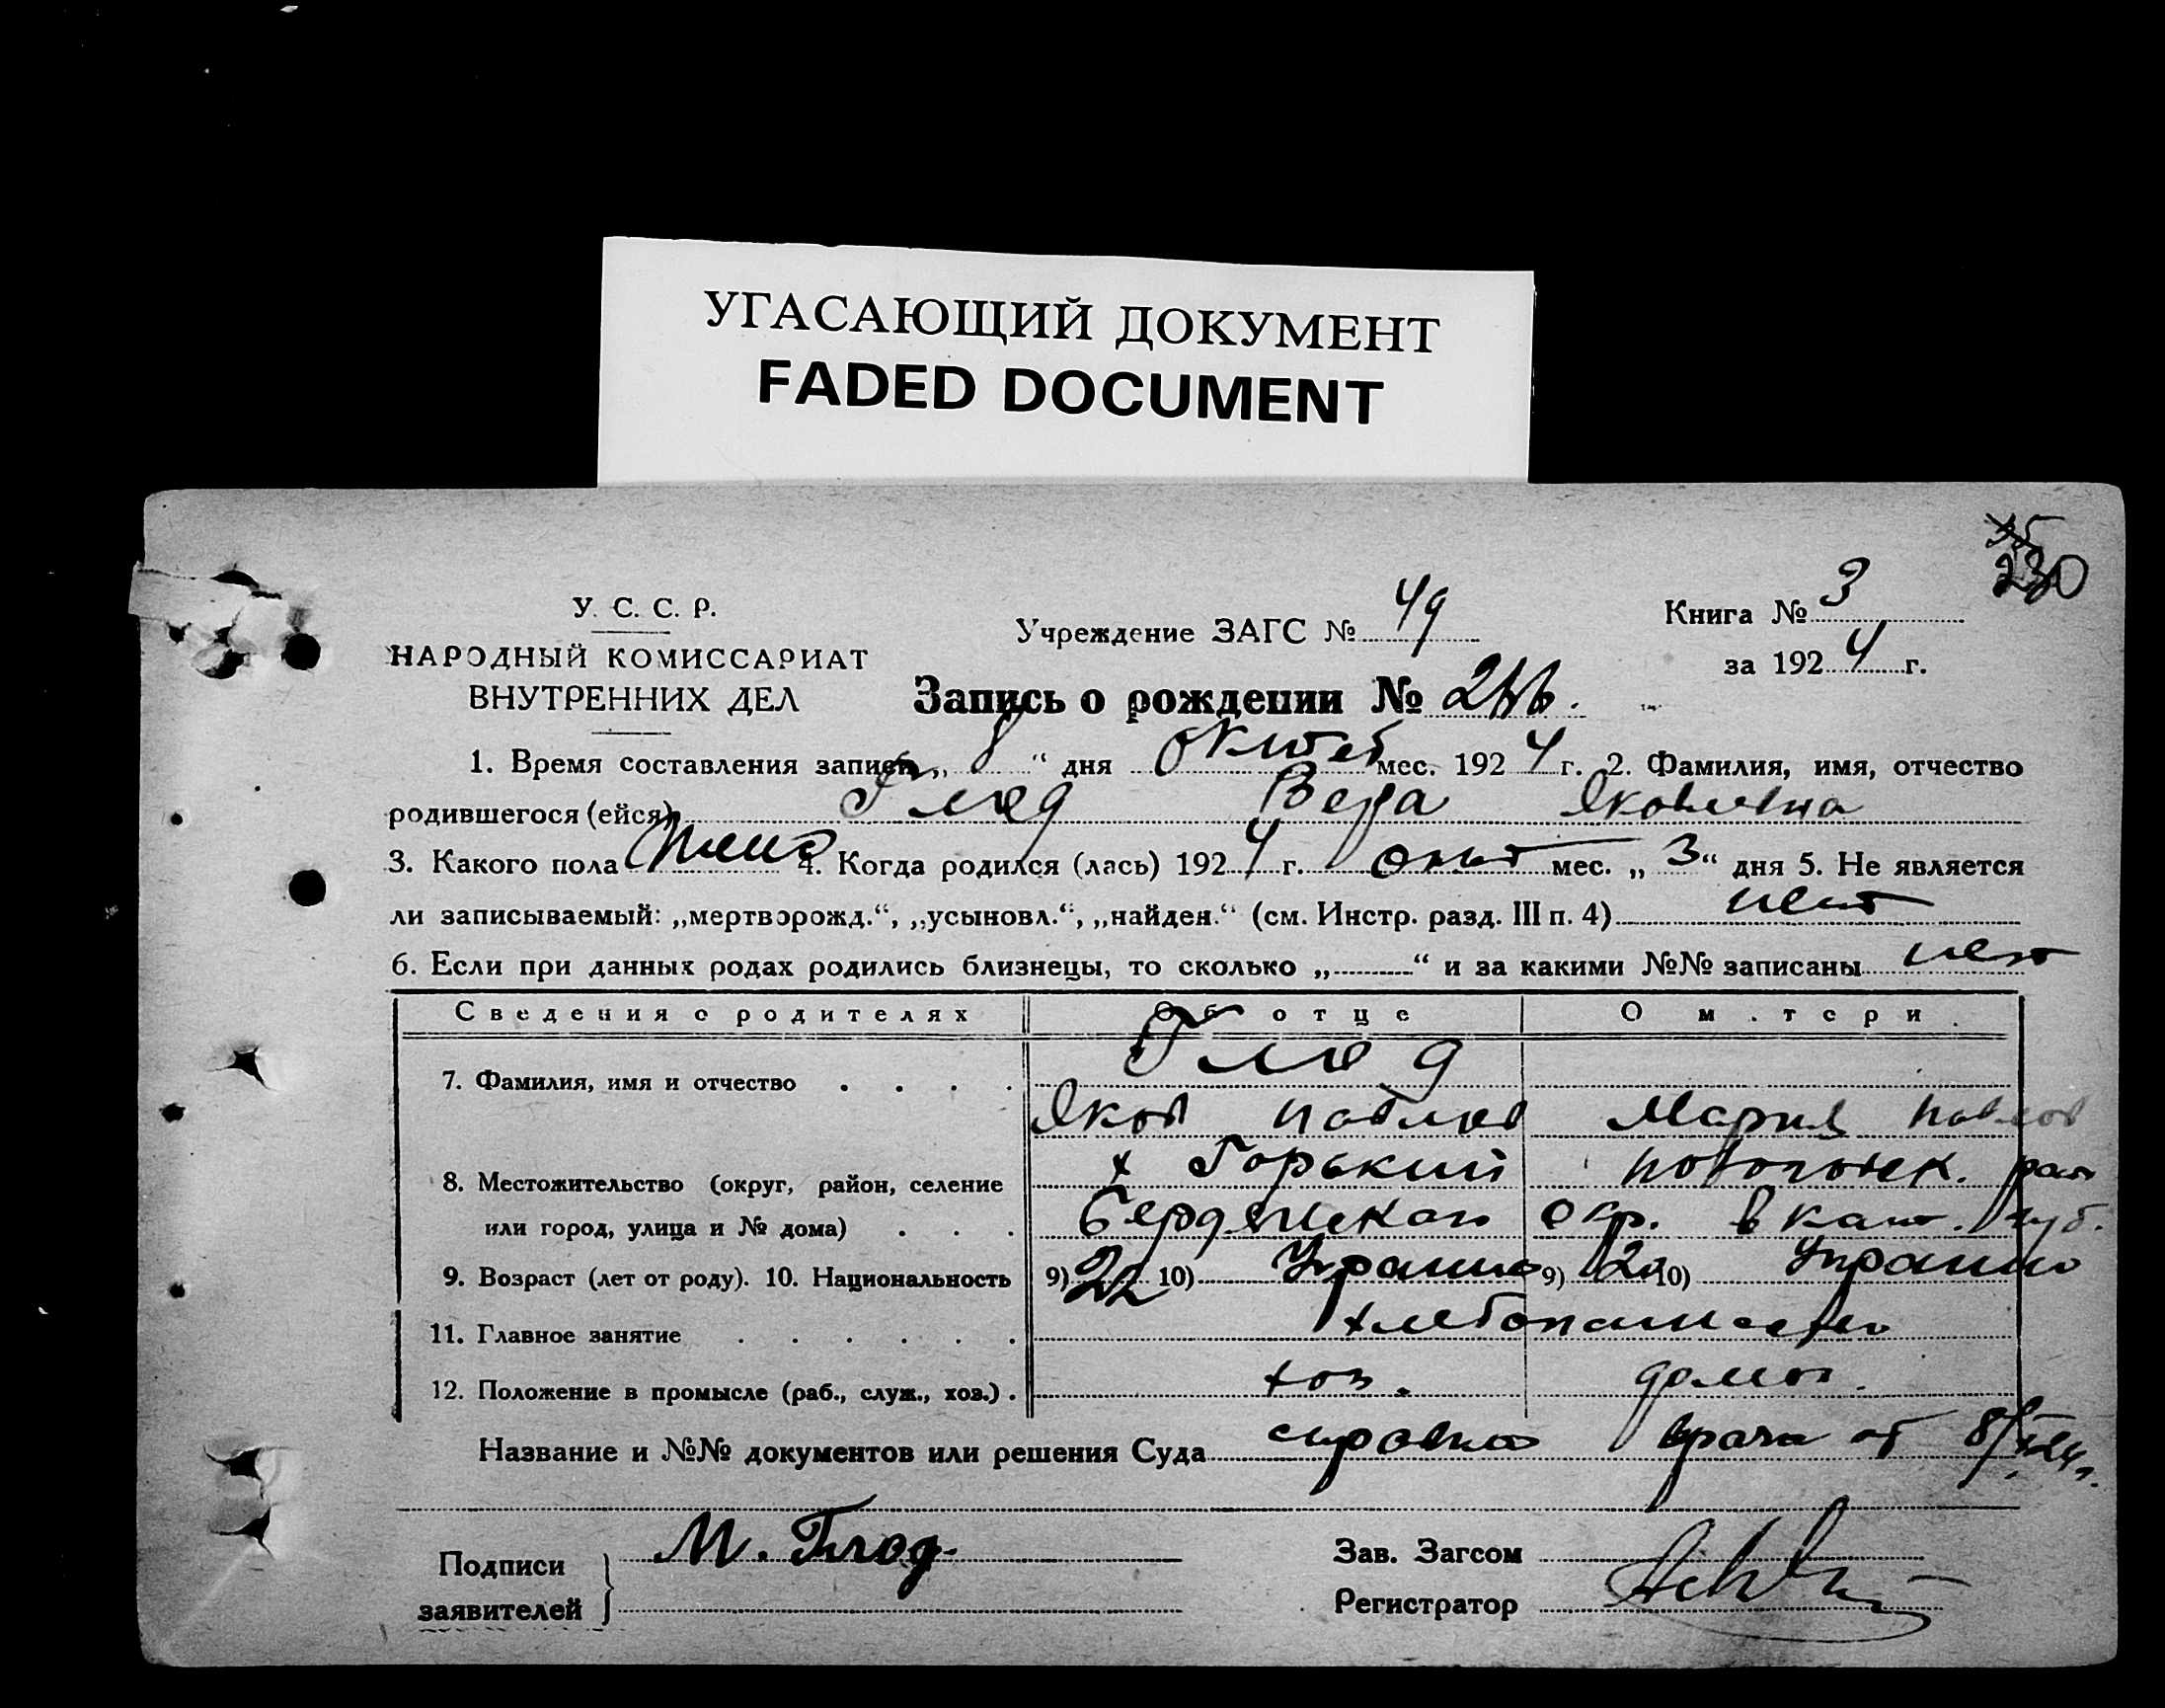 УГАСАЮЩИЙ ДОКУМЕНТ
FADED DOCUMENT
230
У. С. С. Р.
НАРОДНЫЙ КОМИССАРИАТ
ВНУТРЕННИХ ДЕЛ
Учреждение ЗАГС № 49
Книга № 3
за 1924 г.
Запись о рождении №
1. Время составления записи „8“ дня октяб мес. 1924 г. 2. Фамилия, имя, отчество
родившегося (ейся) Глод Вера Яковлевна
3. Какого пола жено 4. Когда родился (лась) 1924 г. окт мес. „3“ дня 5. Не является
ли записываемый: „мертворожд.“, „усыновл.“, „найден.“ (см. Инстр. разд. III п. 4) нет
6. Если при данных родах родились близнецы, то сколько „ “ и за какими №№ записаны нет
Сведения о родителях Об отце О матери
7. Фамилия, имя и отчество Глод
Яков Павлов Мария Павлов
8. Местожительство (округ, район, селение х Горький
или город, улица и № дома) Бердянского окр. Екат. губ.
9. Возраст (лет от роду). 10. Национальность 9) 22 10) Украин 9) 20 10) Украин
11. Главное занятие хлебопашество
12. Положение в промысле (раб., служ., хоз.) хоз. домох.
Название и №№ документов или решения Суда справка врача от 8/X 24 г.
Подписи заявителей М. Глод.
Зав. Загсом
Регистратор